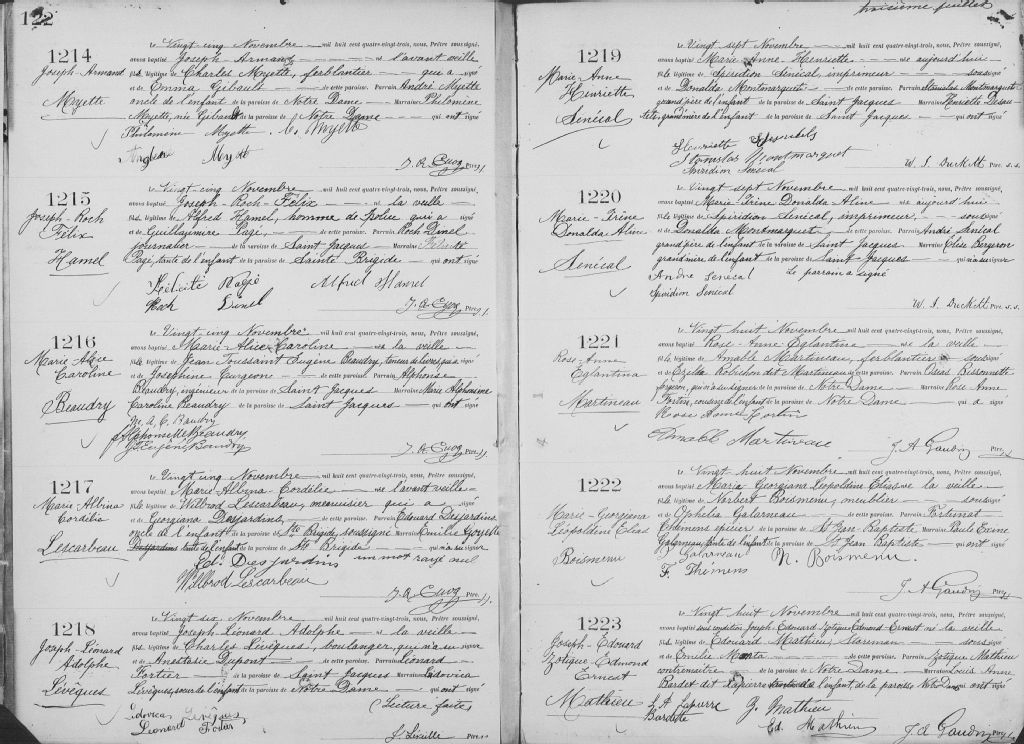 122
1214
Joseph-Armand
Myette
Le Vingt cinq Novembre mil huit cent quatre-vingt-trois, nous, Prêtre soussigné,
avons baptisé Joseph Armand né l'avant veille
fils légitime de Charles Myette, ferblantier qui a signé
et de Emma Gibault de cette paroisse. Parrain André Myette
oncle de l'enfant de la paroisse de Notre Dame Marraine Philomène
Myette, née Gibault de la paroisse de Notre Dame qui ont signé
Philomène Myette C. Myette
Myette
J. A. Cuoq Ptre
1215
Joseph-Roch
Félix
Hamel
Le Vingt cinq Novembre mil huit cent quatre-vingt-trois, nous, Prêtre soussigné,
avons baptisé Joseph-Roch-Félix né la veille
fils légitime de Alfred Hamel, homme de police qui a signé
et de Pagé, de cette paroisse. Parrain Roch
journalier de la paroisse de Saint Jacques Marraine Félicité
Pagé, tante de l'enfant de la paroisse de Sainte Brigide qui ont signé
Félicité Alfred Hamel
Roch
J. A. Cuoq Ptre
1216
Marie-Alice
Caroline
Beaudry
Le Vingt cinq Novembre mil huit cent quatre-vingt-trois, nous, Prêtre soussigné,
avons baptisé Marie-Alice-Caroline née la veille
fille légitime de Jean Toussaint Eugène Beaudry, teneur de livres qui a signé
et de Josephine Turgeon de cette paroisse. Parrain Alphonse
Beaudry, ingénieur de la paroisse de Saint Jacques Marraine Marie Alphonsine
Caroline Beaudry de la paroisse de Saint Jacques qui ont signé
M. A. C. Beaudry
J. Alphonse Beaudry
J. Eugène Beaudry
J. A. Cuoq Ptre
1217
Marie-Albina
Cordélie
Lescarbeau
Le Vingt cinq Novembre mil huit cent quatre-vingt-trois, nous, Prêtre soussigné,
avons baptisé Marie-Albina-Cordélie née l'avant veille
fille légitime de Wilbrod Lescarbeau, menuisier qui a signé
et de Georgiana Desjardins, de cette paroisse. Parrain Edouard Desjardins
oncle de l'enfant de la paroisse de Ste Brigide, soussigné Marraine Emilie Goyette
Desjardins tante de l'enfant de la paroisse de Ste Brigide qui n'a su signer
Ed. Desjardins un mot rayé nul
Wilbrod Lescarbeau
J. A. Cuoq Ptre
1218
Joseph-Léonard
Adolphe
Lévêques
Le Vingt six Novembre mil huit cent quatre-vingt-trois, nous, Prêtre soussigné,
avons baptisé Joseph-Léonard Adolphe né la veille
fils légitime de Charles Lévêques, boulanger, qui n'a su signer
et de Anastasie Dupont de cette paroisse. Parrain Léonard
Fortier de la paroisse de Saint Jacques Marraine Ludovica
Lévêques, soeur de l'enfant de la paroisse de Notre Dame qui ont signé
Lecture faite
Lévêques
Léonard
Ptre
troisième feuillet
1219
Marie-Anne
Henriette
Sénécal
Le Vingt sept Novembre mil huit cent quatre-vingt-trois, nous, Prêtre soussigné,
avons baptisé Marie-Anne-Henriette née aujourd'hui
fille légitime de Spiridion Sénécal, imprimeur soussigné
et de Donalda Montmarquet de cette paroisse. Parrain Stanislas Montmarquet
grand père de l'enfant de la paroisse de Saint Jacques Marraine Henriette Desau-
tels, grand mère de l'enfant de la paroisse de Saint Jacques qui ont signé
Henriette
Stanislas Montmarquet
Spiridion Sénécal
W. J. Duckett Ptre s.s.
1220
Marie-Irène
Donalda Aline
Sénécal
Le Vingt sept Novembre mil huit cent quatre-vingt-trois, nous, Prêtre soussigné,
avons baptisé Marie-Irène-Donalda Aline née aujourd'hui
fille légitime de Spiridion Sénécal, imprimeur, soussigné
et de Donalda Montmarquet, de cette paroisse. Parrain André Sénécal
grand père de l'enfant de la paroisse de Saint Jacques Marraine Elise Bergeron
grand mère de l'enfant de la paroisse de Saint Jacques qui n'a su signer
André Senecal Le parrain a signé
Spiridion Sénécal
W. J. Duckett Ptre s.s.
1221
Rose-Anne
Eglantina
Martineau
Le Vingt huit Novembre mil huit cent quatre-vingt-trois, nous, Prêtre soussigné,
avons baptisé Rose-Anne Eglantina née la veille
fille légitime de Amable Martineau, ferblantier soussigné
et de Ezilda Robichon dit Martineau de cette paroisse. Parrain Oscar Bissonnette
forgeron, qui n'a su signer de la paroisse de Notre Dame Marraine Rose Anne
Fortin, cousine de l'enfant de la paroisse de Notre Dame qui a signé
Rose Anne Fortin
Amable Martineau
J. A. Gaudin Ptre
1222
Marie-Georgiana
Léopoldine Elias
Boismenu
Le Vingt huit Novembre mil huit cent quatre-vingt-trois, nous, Prêtre soussigné,
avons baptisé Marie Georgiana Léopoldine Elias née la veille
fille légitime de Norbert Boismenu, meublier soussigné
et de Ophélia Galarneau de cette paroisse. Parrain Fortunat
Thémens épicier de la paroisse de St Jean Baptiste Marraine
Galarneau, tante de l'enfant de la paroisse de St Jean Baptiste qui ont signé
Galarneau N. Boismenu
F. Thémens
J. A. Gaudin Ptre
1223
Joseph-Edouard
Zotique, Edmond
Ernest
Mathieu
Le Vingt huit Novembre mil huit cent quatre-vingt-trois, nous, Prêtre soussigné,
avons baptisé sous condition Joseph Edouard Zotique Edmond Ernest né la veille
fils légitime de Edouard Mathieu, storeman soussigné
et de Emilie de cette paroisse. Parrain Zotique Mathieu
contremaître de la paroisse de Notre Dame Marraine Louis Anne
Bardet dit Lapierre de l'enfant, de la paroisse Notre Dame qui ont signé
Z. Mathieu
Ed. Mathieu
J. A. Gaudin Ptre